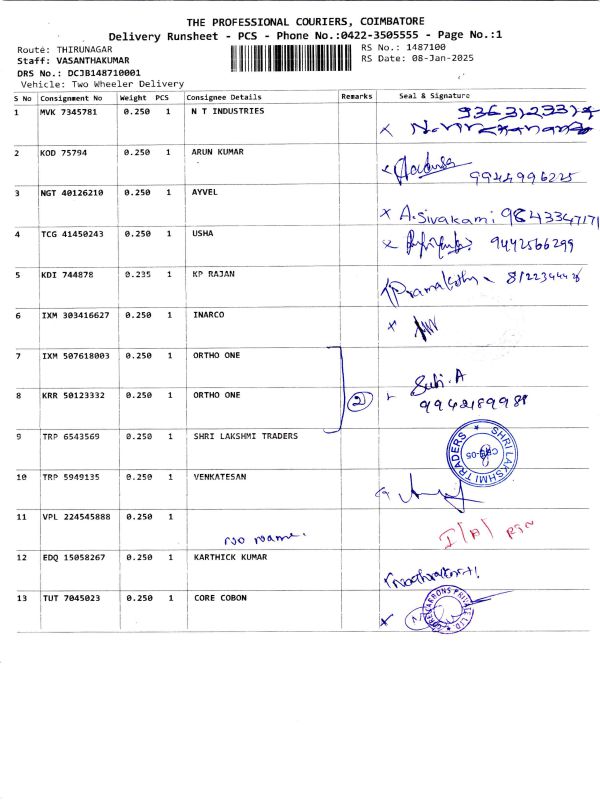 THE PROFESSIONAL COURIERS, COIMBATORE
Delivery Runsheet - PCS - Phone No.:0422-3505555 - Page No.:1
Route: THIRUNAGAR
RS No.: 1487100
Staff: VASANTHAKUMAR
RS Date: 08-Jan-2025
DRS No.: DCJB148710001
Vehicle: Two Wheeler Delivery
S No Consignment No Weight PCS Consignee Details Remarks Seal & Signature
1 MVK 7345781 0.250 1 N T INDUSTRIES
2 KOD 75794 0.250 1 ARUN KUMAR
9944996225
3 NGT 40126210 0.250 1 AYVEL
x A.Sivakami 9843347171
4 TCG 41450243 0.250 1 USHA
x 9442566299
5 KDI 744878 0.235 1 KP RAJAN
6 IXM 303416627 0.250 1 INARCO
x
7 IXM 507618003 0.250 1 ORTHO ONE
Subi.A
8 KRR 50123332 0.250 1 ORTHO ONE 2
9942189981
9 TRP 6543569 0.250 1 SHRI LAKSHMI TRADERS
SHRI LAKSHMI TRADERS
CBE-05
10 TRP 5949135 0.250 1 VENKATESAN
11 VPL 224545888 0.250 1
No name.
12 EDQ 15058267 0.250 1 KARTHICK KUMAR
13 TUT 7045023 0.250 1 CORE COBON
x